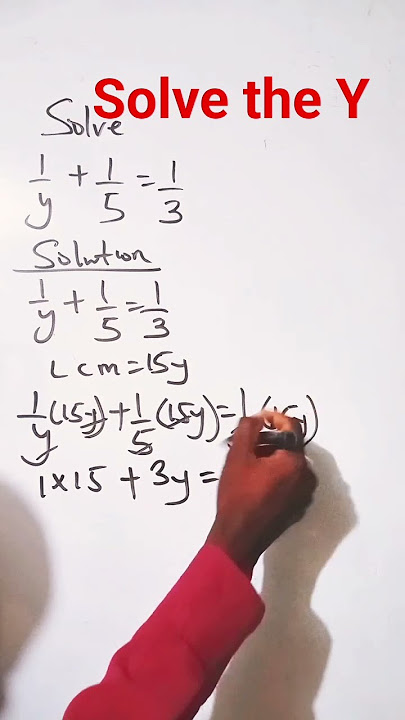 Solve the Y
Solve
1/y + 1/5 = 1/3
Solution
1/y + 1/5 = 1/3
LCM = 15y
1/y (15y) + 1/5 (15y) = 1/ (15y)
1 x 15 + 3y =